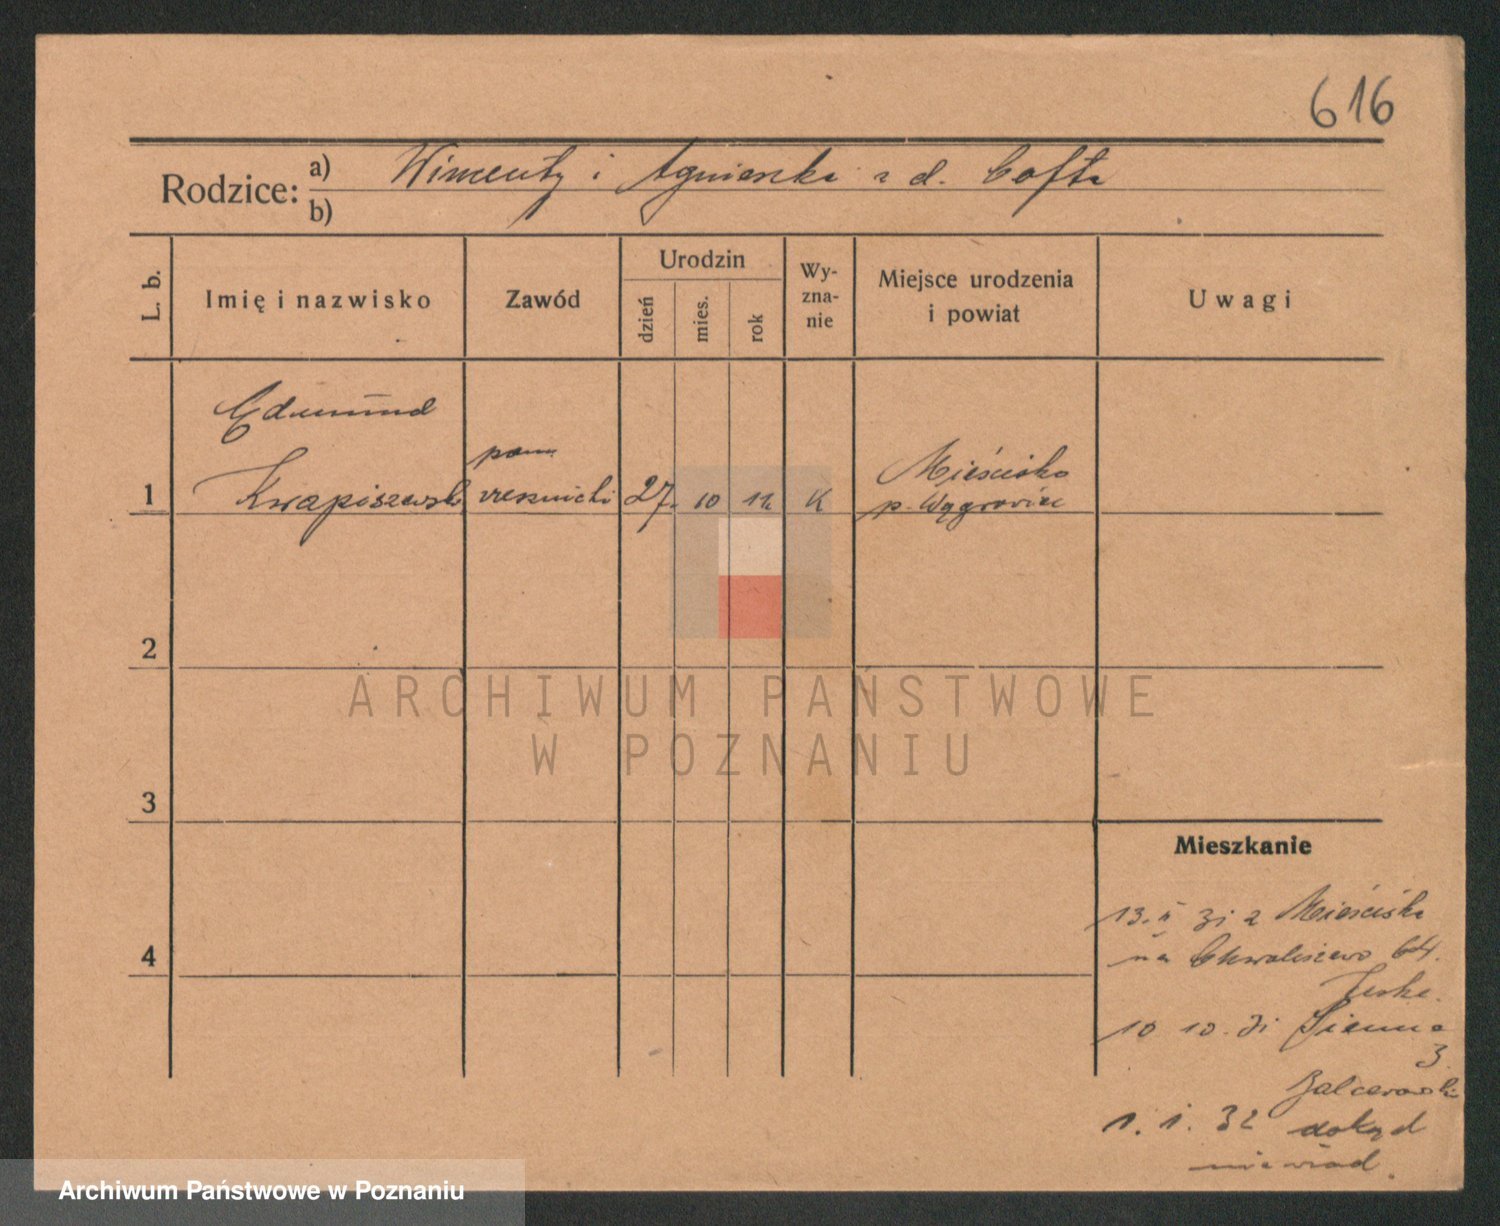 616
Rodzice: a) Wincenty i Agnieszka z d. Cofta
b)
L. b.
Imię i nazwisko
Zawód
Urodzin
dzień
mies.
rok
Wy-
zna-
nie
Miejsce urodzenia
i powiat
Uwagi
Edmund
1 Kwapiszewski
pom.
rzeźnicki
27. 10 12 K
Mieścisko
p. Wągrowiec
2
3
4
ARCHIWUM PAŃSTWOWE
W POZNANIU
Mieszkanie
13. II 31 z Mieściska
na Chwaliszewo 64.
10 10. 31 Sienna
3.
Balcerowski
1. 1. 32 dokąd
nie wiad.
Archiwum Państwowe w Poznaniu